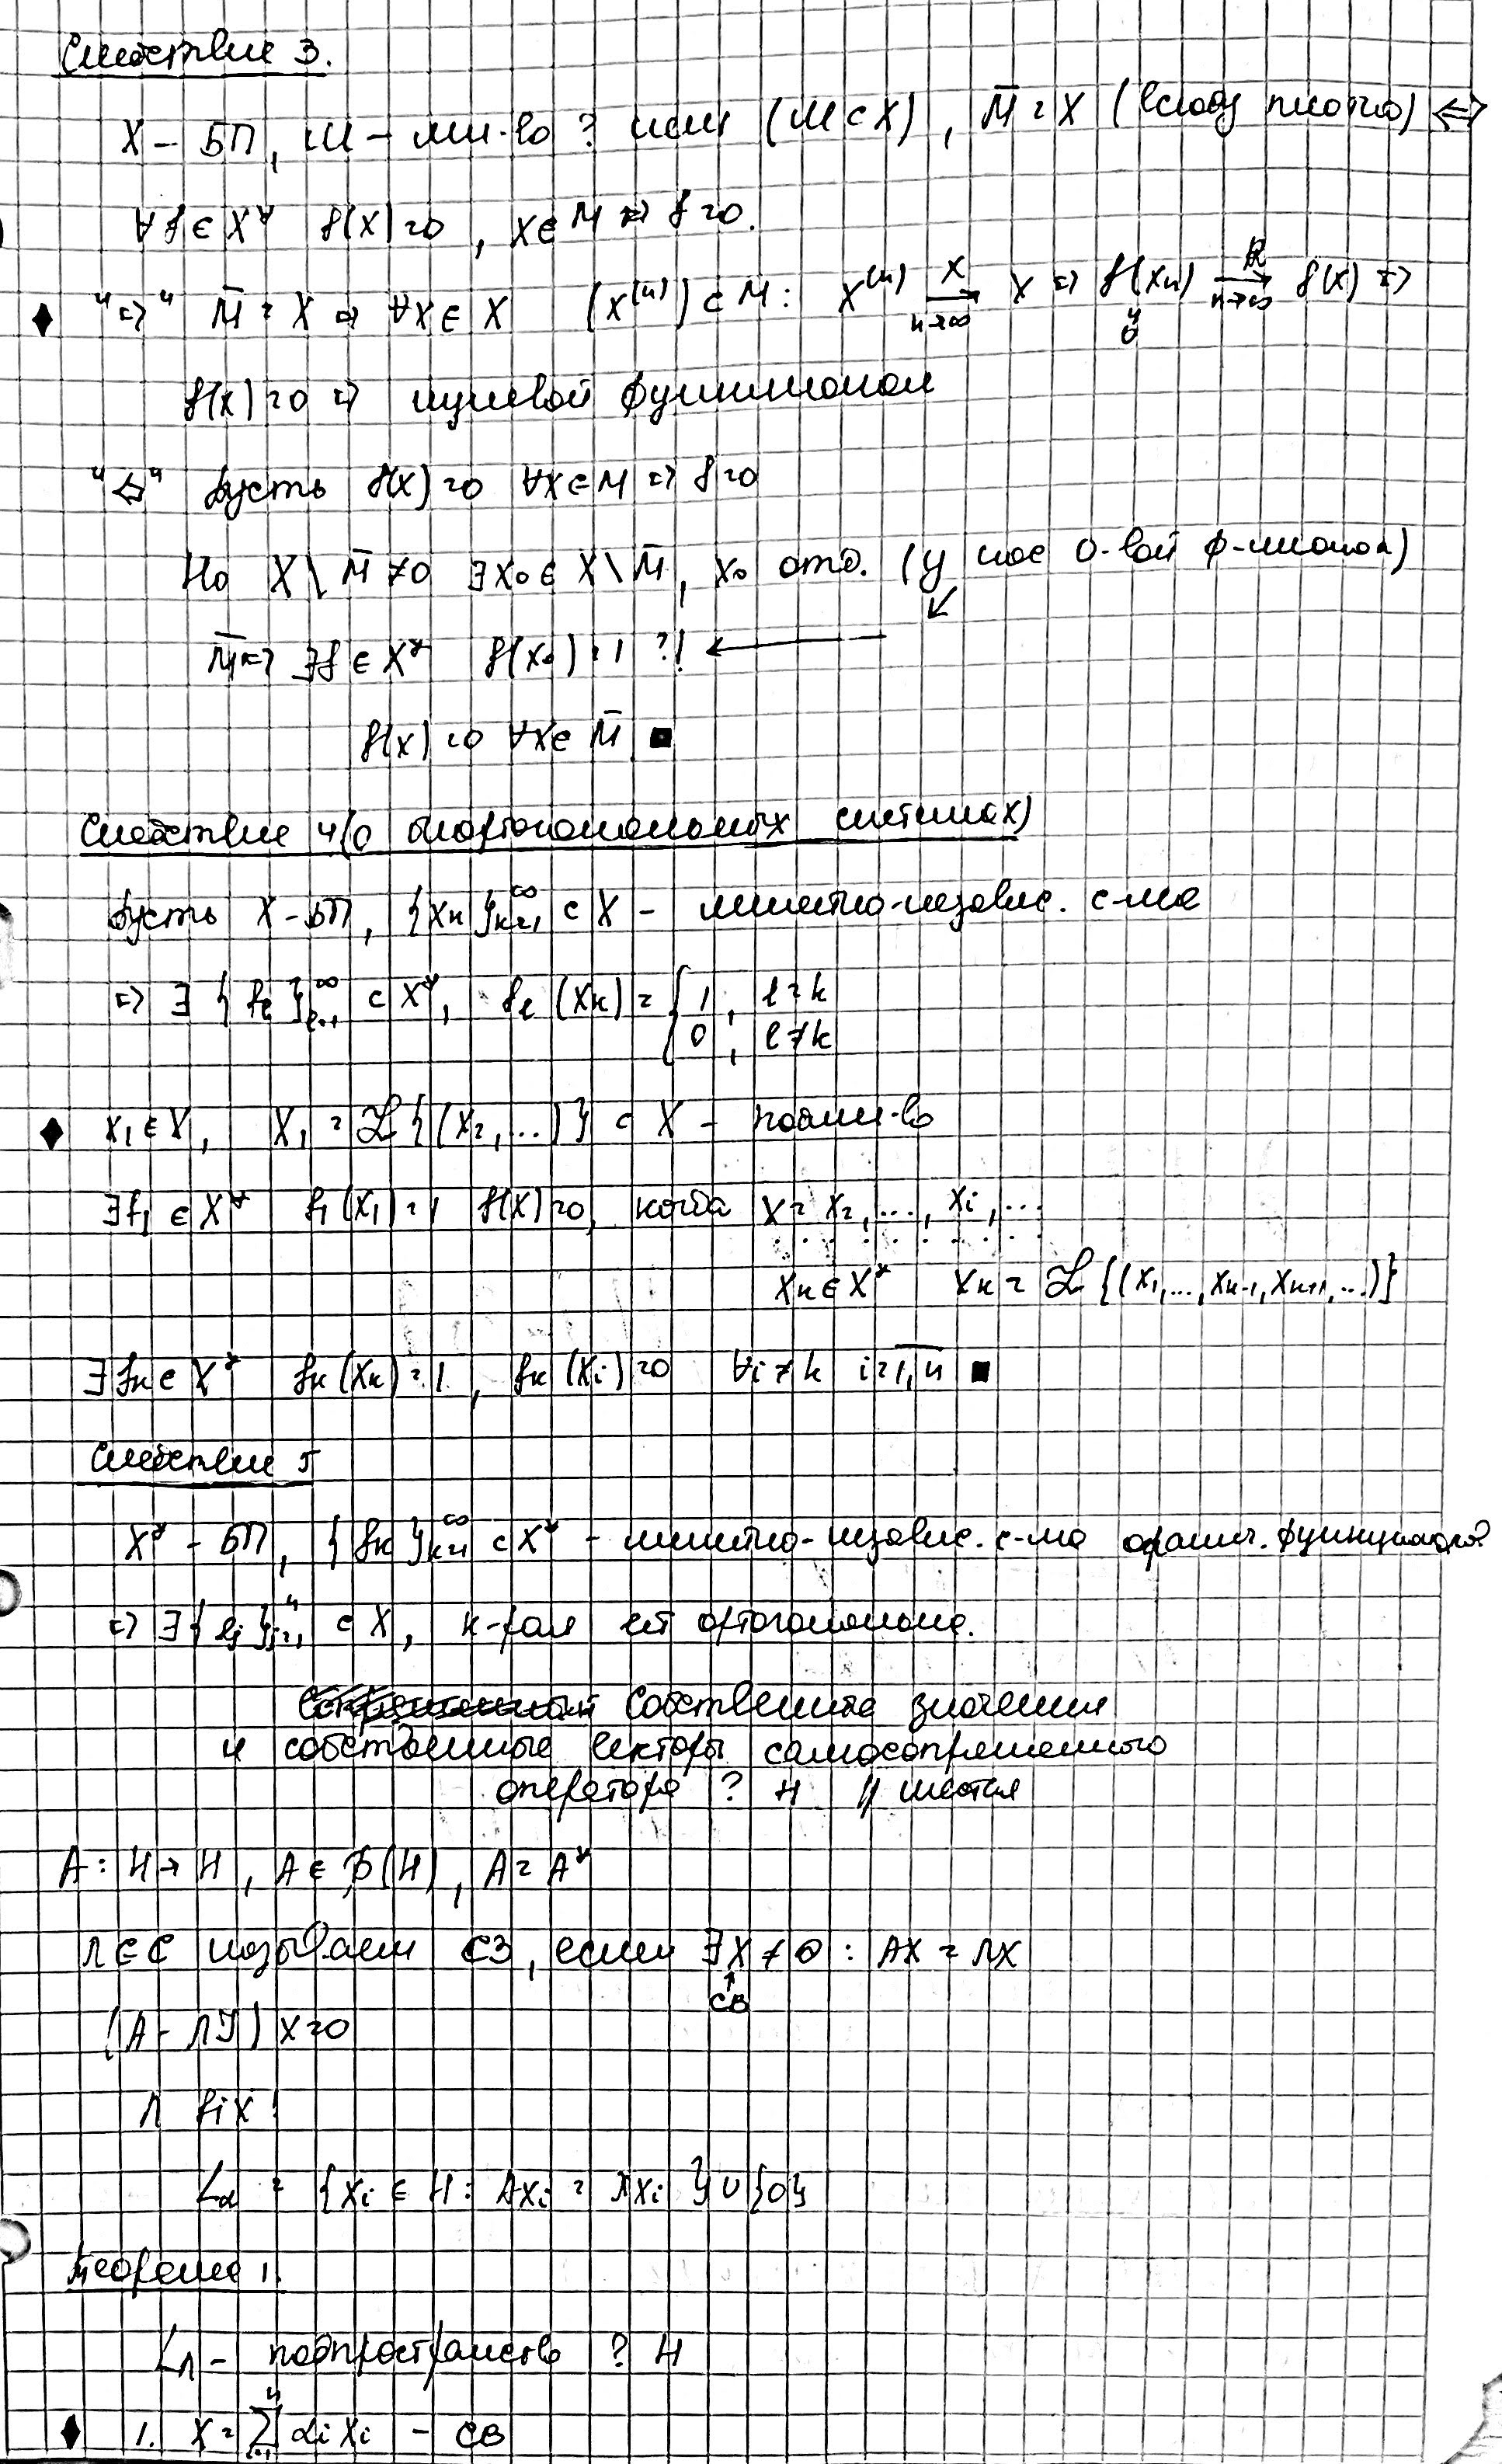 Следствие 3.
X – БП, M – мн-во ? или (M ⊂ X), M̄ = X (всюду плотно) ⇔
∀f ∈ X* f(x) = 0, x ∈ M ⇒ f = 0.
"⇒" M̄ = X ⇒ ∀x ∈ X (x⁽ⁿ⁾) ⊂ M: x⁽ⁿ⁾ →(X, n→∞) x ⇒ f(xₙ) →(R, n→∞) f(x) ⇒
0
f(x) = 0 ⇒ нулевой функционал
"⇐" Пусть f(x) = 0 ∀x ∈ M ⇒ f = 0
Но X \ M̄ ≠ 0 ∃x₀ ∈ X \ M̄, x₀ отд. (у нас 0-вой ф-ционал)
M̄ ⇒ ∃f ∈ X* f(x₀) = 1 ?! ←
f(x) = 0 ∀x ∈ M̄ ■
Следствие 4 (о биортогональных системах)
Пусть X – БП, {xₖ}ₖ₌₁^∞ ⊂ X – линейно-независ. с-ма
⇒ ∃ {fₗ}ₗ₌₁^∞ ⊂ X*, fₗ(xₖ) = { 1, l = k
0, l ≠ k
x₁ ∈ X, X₁ = ℒ{(x₂, ...)} ⊂ X – подмн-во
∃f₁ ∈ X* f₁(x₁) = 1 f(x) = 0, когда x = x₂, ..., xᵢ, ...
xₖ ∈ X* Xₖ = ℒ{(x₁, ..., xₖ₋₁, xₖ₊₁, ...)}
∃fₖ ∈ X* fₖ(xₖ) = 1, fₖ(xᵢ) = 0 ∀i ≠ k i = 1,n ■
Следствие 5
X* – БП, {fₖ}ₖ₌₁^∞ ⊂ X* – линейно-независ. с-ма огранич. функционалов
⇒ ∃{eⱼ}ⱼ₌₁ⁿ ⊂ X, к-рая ей ортогональна.
Собственные значения
и собственные векторы самосопряженного
оператора ? H
A: H → H, A ∈ B(H), A = A*
λ ∈ C называем СЗ, если ∃x ≠ 0: Ax = λx
↑
СВ
(A - λI)x = 0
λ fix!
L_λ = {xᵢ ∈ H: Axᵢ = λxᵢ} ∪ {0}
Теорема 1.
L_λ – подпространство ? H
1. x = ∑ᵢ₌₁ⁿ αᵢxᵢ – СВ